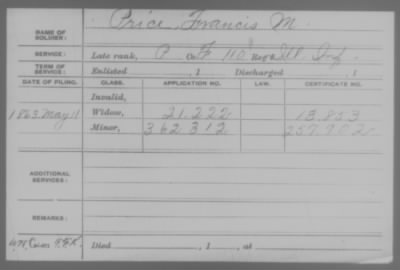 Price, Francis M.
NAME OF SOLDIER:
SERVICE: Late rank, P Co. F, 110 Reg't Ill. Inf.
TERM OF SERVICE: Enlisted , 1 Discharged , 1
DATE OF FILING. CLASS. APPLICATION NO. LAW. CERTIFICATE NO.
Invalid,
1863 May 11 Widow, 21.222 13.853
Minor, 362 312 257.702
ADDITIONAL SERVICES:
REMARKS:
Died , 1 , at